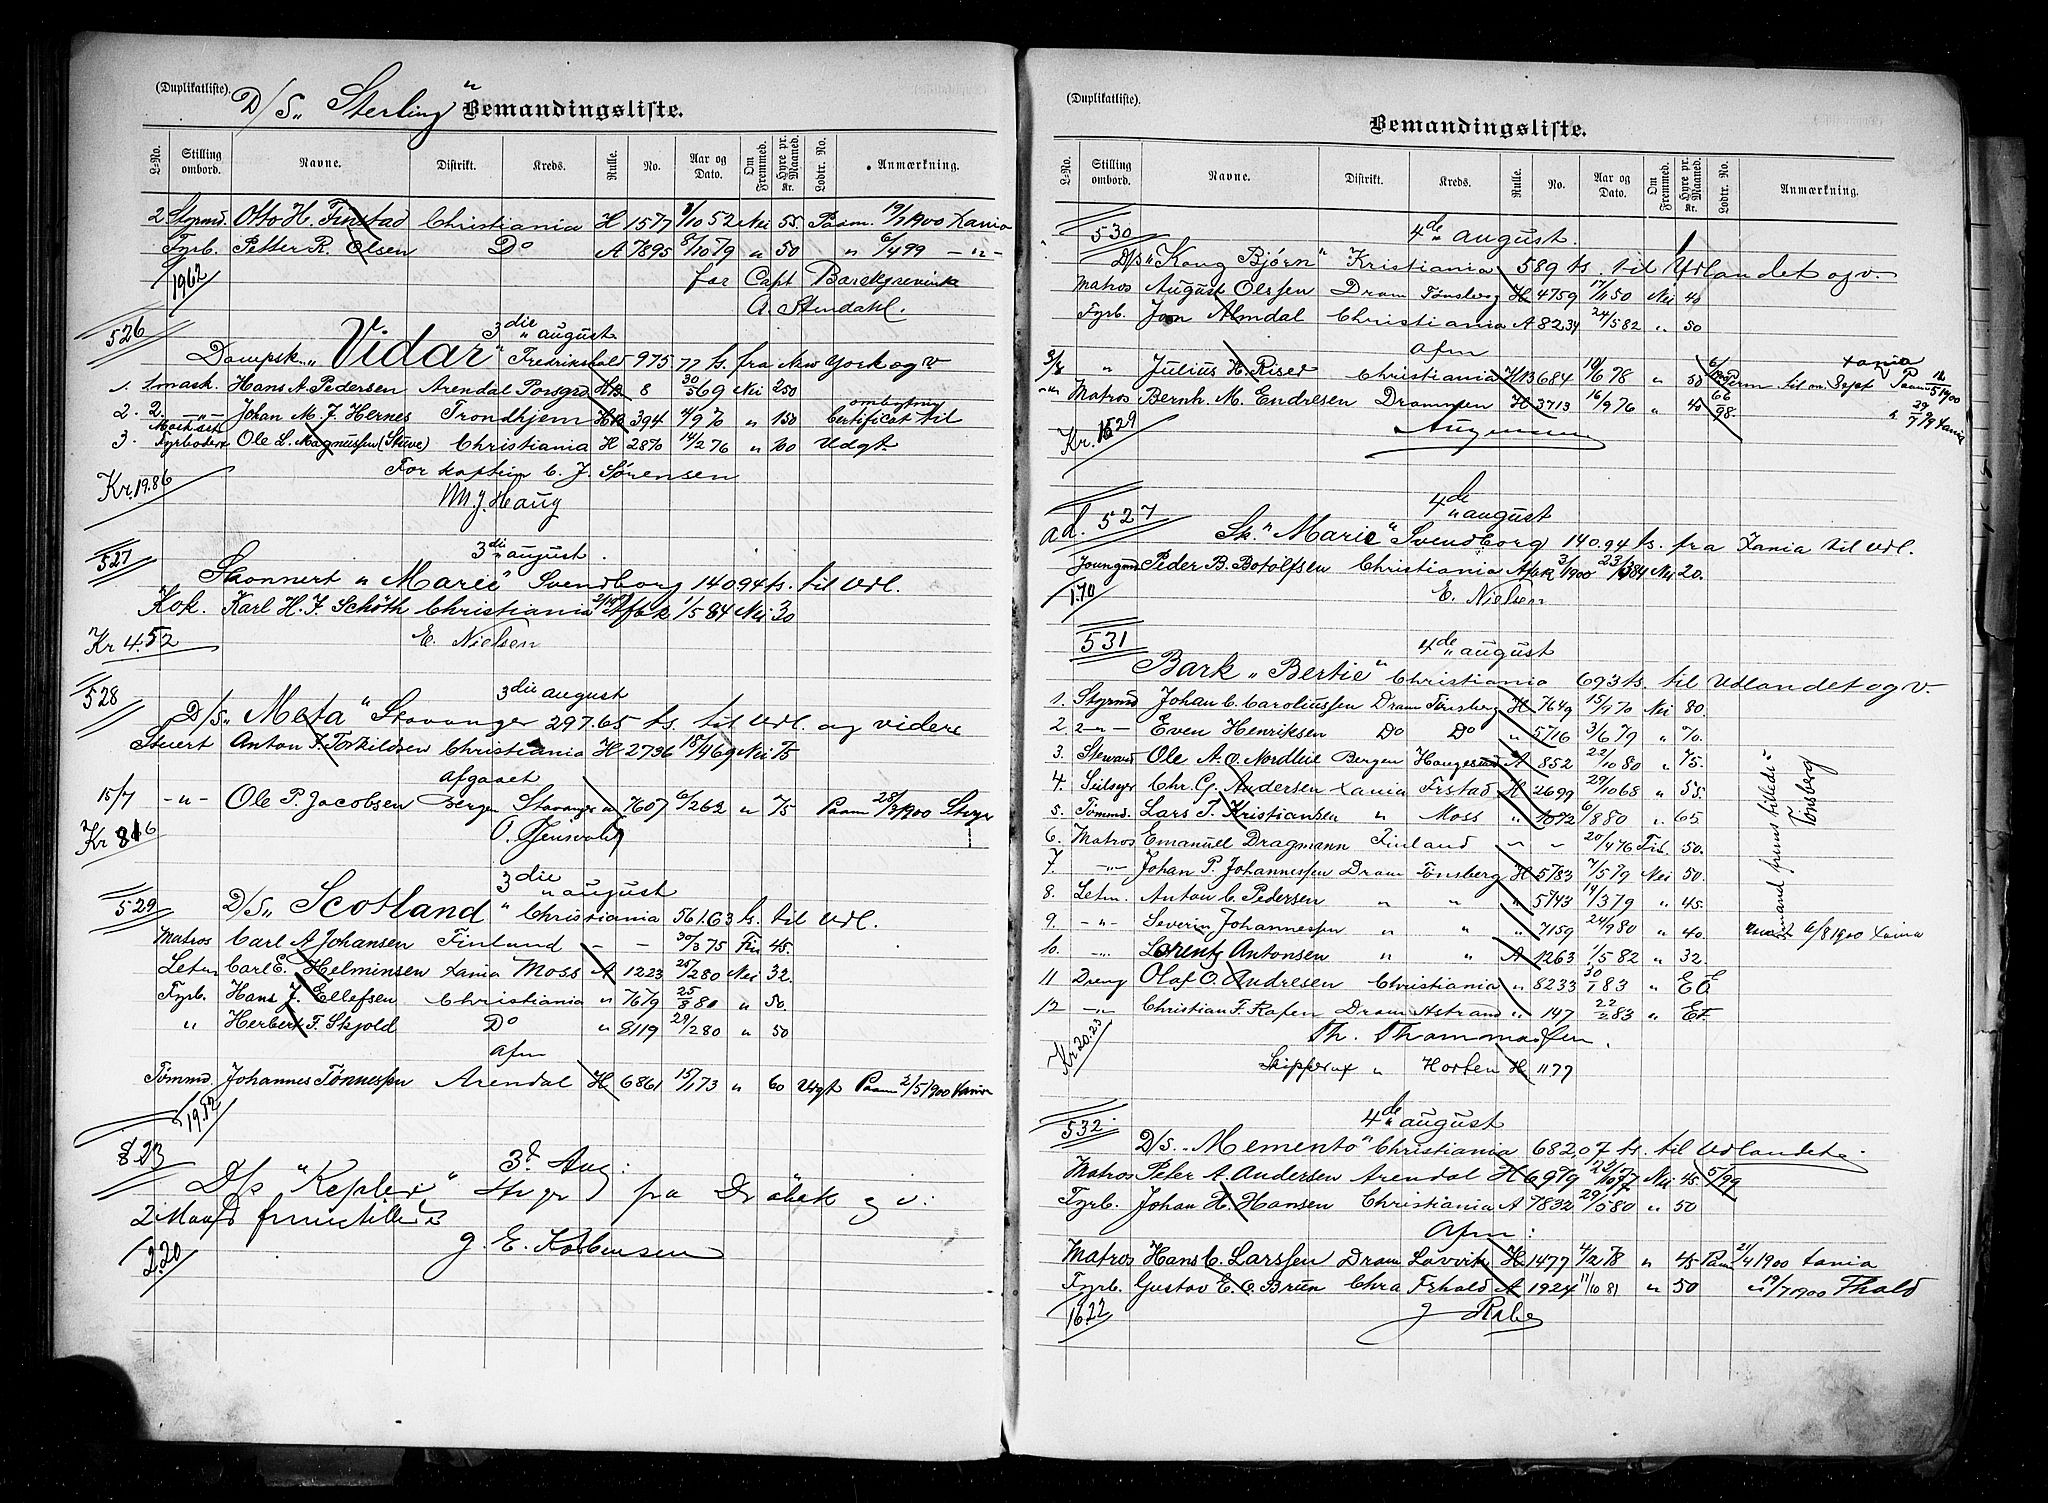 (Duplikatliste).
D/S „Sterling" Bemandingsliste.
L-No. Stilling ombord. Navne. Distrikt. Kreds. Rulle. No. Aar og Dato. Om Fremmed. Hyre pr. Maaned. Kr. Lodtr. No. Anmærkning.
2 Styrmd. Otto H. Finstad Christiania H 1577 /10 52 Nei 55 Paam. 19/7 1900 Xania
Fyrb. Petter R. Olsen Do A 7895 8/10 79 " 50 " 6/4 99 -"-
1962 for Capt
A. Stendahl.
526 3die august
Dampsk. „Vidar" Fredrikshald 975 77 ts. fra New York og v
1. 1 mask. Hans A. Pedersen Arendal Porsgrd 8 30/5 69 Nei 250
2. 2. -"- Johan M. J. Hernes Trondhjem 394 4/9 70 " 150 Certificat til
3. Fyrböter Ole L. Magnussen (Skuve) Christiania H 2870 14/2 76 " 100 Udgt.
For kaptein C. J. Sörensen
Kr. 19.86 M. J. Haug
527 3die august.
Skonnert „Marie" Svendborg 140 94 ts. til Udl.
Kok. Karl H. F. Schöth Christiania 1/5 84 Nei 30
Kr 4.52 E. Nielsen
528 3die august
D/S „Meta" Stavanger 297.65 ts. til Udl. og videre
Stuert Anton F. Torkildsen Christiania H 2736 18/4 69 Nei 75
afgaaet
15/7 -"- Ole P. Jacobsen Bergen Stavanger " 7607 6/2 62 " 75 Paam 28/3 1900 Stvgr
Kr 8.16
529 3die august
D/S „Scotland" Christiania 561.63 ts. til Udl.
Matros Carl A. Johansen Finland - - 30/3 75 Fin 45.
Letm Carl E. Helminsen Xania Moss A 1223 25/2 80 Nei 32.
Fyrb. Hans J. Ellefsen Christiania " 7679 25/8 80 " 50.
" Herbert F. Skjold Do " 8119 29/2 80 " 50
afm
Tömmd. Johannes Tönnessen Arendal H 6861 15/1 73 " 60 Udgt Paam 2/5 1900 Xania
19.52
8.23 3d Aug:
D/s "Kepler" Stvgr fra Dröbak og v:
2 Mand fremstilles
2.20 g. E. Kolbensen
(Duplikatliste).
Bemandingsliste.
L-No. Stilling ombord. Navne. Distrikt. Kreds. Rulle. No. Aar og Dato. Om Fremmed. Hyre pr. Maaned. Kr. Lodtr. No. Anmærkning.
530 4de august.
D/s „Kong Bjørn" Kristiania 589 ts. til Udlandet og v.
Matros August Olssen Dram Tönsberg H 4759 17/11 50 Nei 40
Fyrb. Jon Almdal Christiania A 8234 24/5 82 " 50
afm
3/8 " Julius H. Riser Christiania H 13684 10/6 78 " 50 Perm til m. Sept Xania Paam
Matros Bernh. M. Endresen Drammen H 3713 16/9 76 " 45
Kr. 15.29
ad. 527 4de august
Sk. „Marie" Svendborg 140.94 ts. fra Xania til Udl.
Joungmd Peder B. Botolfsen Christiania 3/1900 23/3 84 Nei 20.
1.70 E. Nielsen
531 4de august
Bark „Bertie" Christiania 693 ts. til Udlandet og v.
1. Styrmd Johan C. Caroliussen Dram Tönsberg H 7649 15/9 70 Nei 80.
2 2 -"- Even Henriksen Do Do " 5716 3/6 79 " 70.
3. Steward Ole A. O. Nordlie Bergen Haugesund A 852 22/10 80 " 75.
4. Seilsyer Chr. G. Andersen Xania Frstad H 2699 29/10 68 " 55.
5. Tömmd. Lars T. Kristiansen " Moss " 1072 6/8 80 " 65
6. Matros Emanuell Dragmann Finland - - 20/4 76 Fin. 50.
7. -"- Johan P. Johannessen Dram Tönsberg H 5783 7/5 79 Nei 50.
8. Letm. Anton C. Pedersen " " " 5743 19/3 79 " 45.
9. -"- Severin Johannessen " " " 7159 24/9 80 " 40. 6/8 1900 Xania
10. -"- Lorentz Antonsen " " A 1263 1/5 82 " 32.
11 Dreng Olaf O. Andresen Christiania " 8233 30/1 83 " E E
12 -"- Christian F. Rafen Dram Astrand " 147 22/2 83 " Et
mand frems tilledes Tönsberg
Kr 20.23 Th. Thommassen.
Skipper af " Horten H 1177
532 4de august
D/S. „Memento" Christiania 682,07 ts. til Udlandet.
Matros Peter A. Andersen Arendal H 6979 22/10 77 Nei 45 5/99
Fyrb. Johan H. Hansen Christiania A 7832 29/5 80 " 50
Afm:
Matros Hans C. Larssen Dram Larvik H 1477 4/2 78 " 45 Paam 21/4 1900 Xania
Fyrb. Gustav E. O. Brun Chra Frhald A 1924 11/10 81 " 50 " 19/7 1900 Fhald
16.22 J Rabe